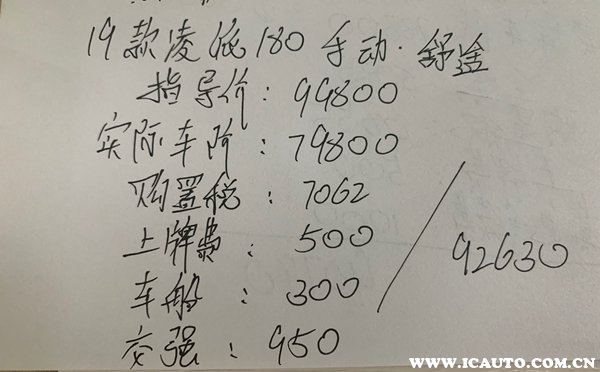 19款凌派180手动·舒适
指导价：99800
实际车价：79800
购置税：7062
上牌费：500
车船：300
交强：950
92630
爱卡汽车
WWW.ICAUTO.COM.CN